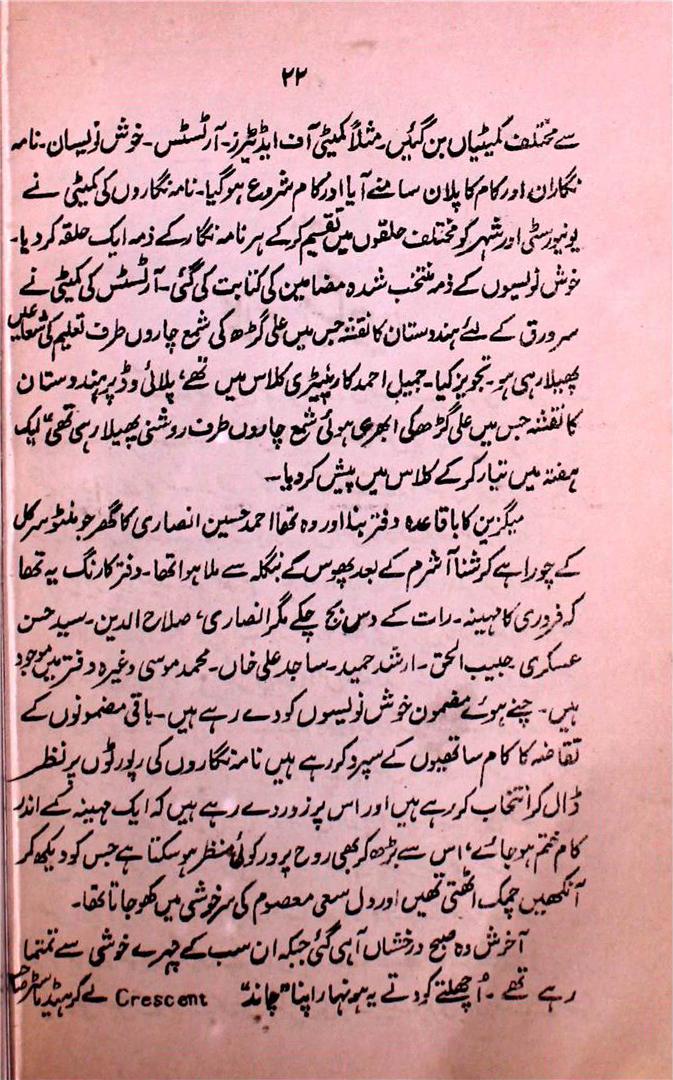 ۲۲
سے مختلف کمیٹیاں بن گئیں۔ مثلاً کمیٹی آف ایڈیٹرز۔ آرٹسٹس۔ خوش نویسان۔ نامہ
نگاران اور کام کا پلان سامنے آیا اور کام شروع ہو گیا۔ نامہ نگاروں کی کمیٹی نے
یونیورسٹی اور شہر کو مختلف حلقوں میں تقسیم کر کے ہر نامہ نگار کے ذمہ ایک حلقہ کر دیا۔
خوش نویسوں کے ذمہ منتخب شدہ مضامین کی کتابت کی گئی۔ آرٹسٹس کی کمیٹی نے
سرورق کے لئے ہندوستان کا نقشہ جس میں علی گڑھ کی شمع چاروں طرف تعلیم کی شعاعیں
پھیلا رہی ہو۔ تجویز کیا۔ جمیل احمد کارپینٹری کلاس میں تھے، پلائی وڈ پر ہندوستان
کا نقشہ جس میں علی گڑھ کی ابھری ہوئی شمع چاروں طرف روشنی پھیلا رہی تھی" ایک
ہفتہ میں تیار کر کے کلاس میں پیش کر دیا۔
میگزین کا باقاعدہ دفتر بنا اور وہ تھا احمد حسین انصاری کا گھر جو منٹو سرکل
کے چوراہے کرشنا آشرم کے بعد پھوس کے بنگلہ سے ملا ہوا تھا۔ دفتر کا رنگ یہ تھا
کہ فروری کا مہینہ۔ رات کے دس بج چکے مگر انصاری، صلاح الدین۔ سید حسن
عسکری حبیب الحق۔ ارشد حمید۔ ساجد علی خاں۔ محمد موسی وغیرہ دفتر میں موجود
ہیں۔ چنے ہوئے مضمون خوش نویسوں کو دے رہے ہیں۔ باقی مضمونوں کے
تقاضہ کا کام ساتھیوں کے سپرد کر رہے ہیں نامہ نگاروں کی رپورٹوں پر نظر
ڈال کر انتخاب کر رہے ہیں اور اس پر زور دے رہے ہیں کہ ایک مہینہ کے اندر
کام ختم ہو جائے، اس سے بڑھ کر بھی روح پرور کوئی منظر ہو سکتا ہے جس کو دیکھ کر
آنکھیں چمک اٹھتی تھیں اور دل سعی معصوم کی سرخوشی میں کھو جاتا تھا۔
آخرش وہ صبح درخشاں آ ہی گئی جبکہ ان سب کے چہرے خوشی سے تمتما
رہے تھے۔ اُچھلتے کودتے یہ ہونہار اپنا "چاند" Crescent لے کر ہیڈ ماسٹر صاحب